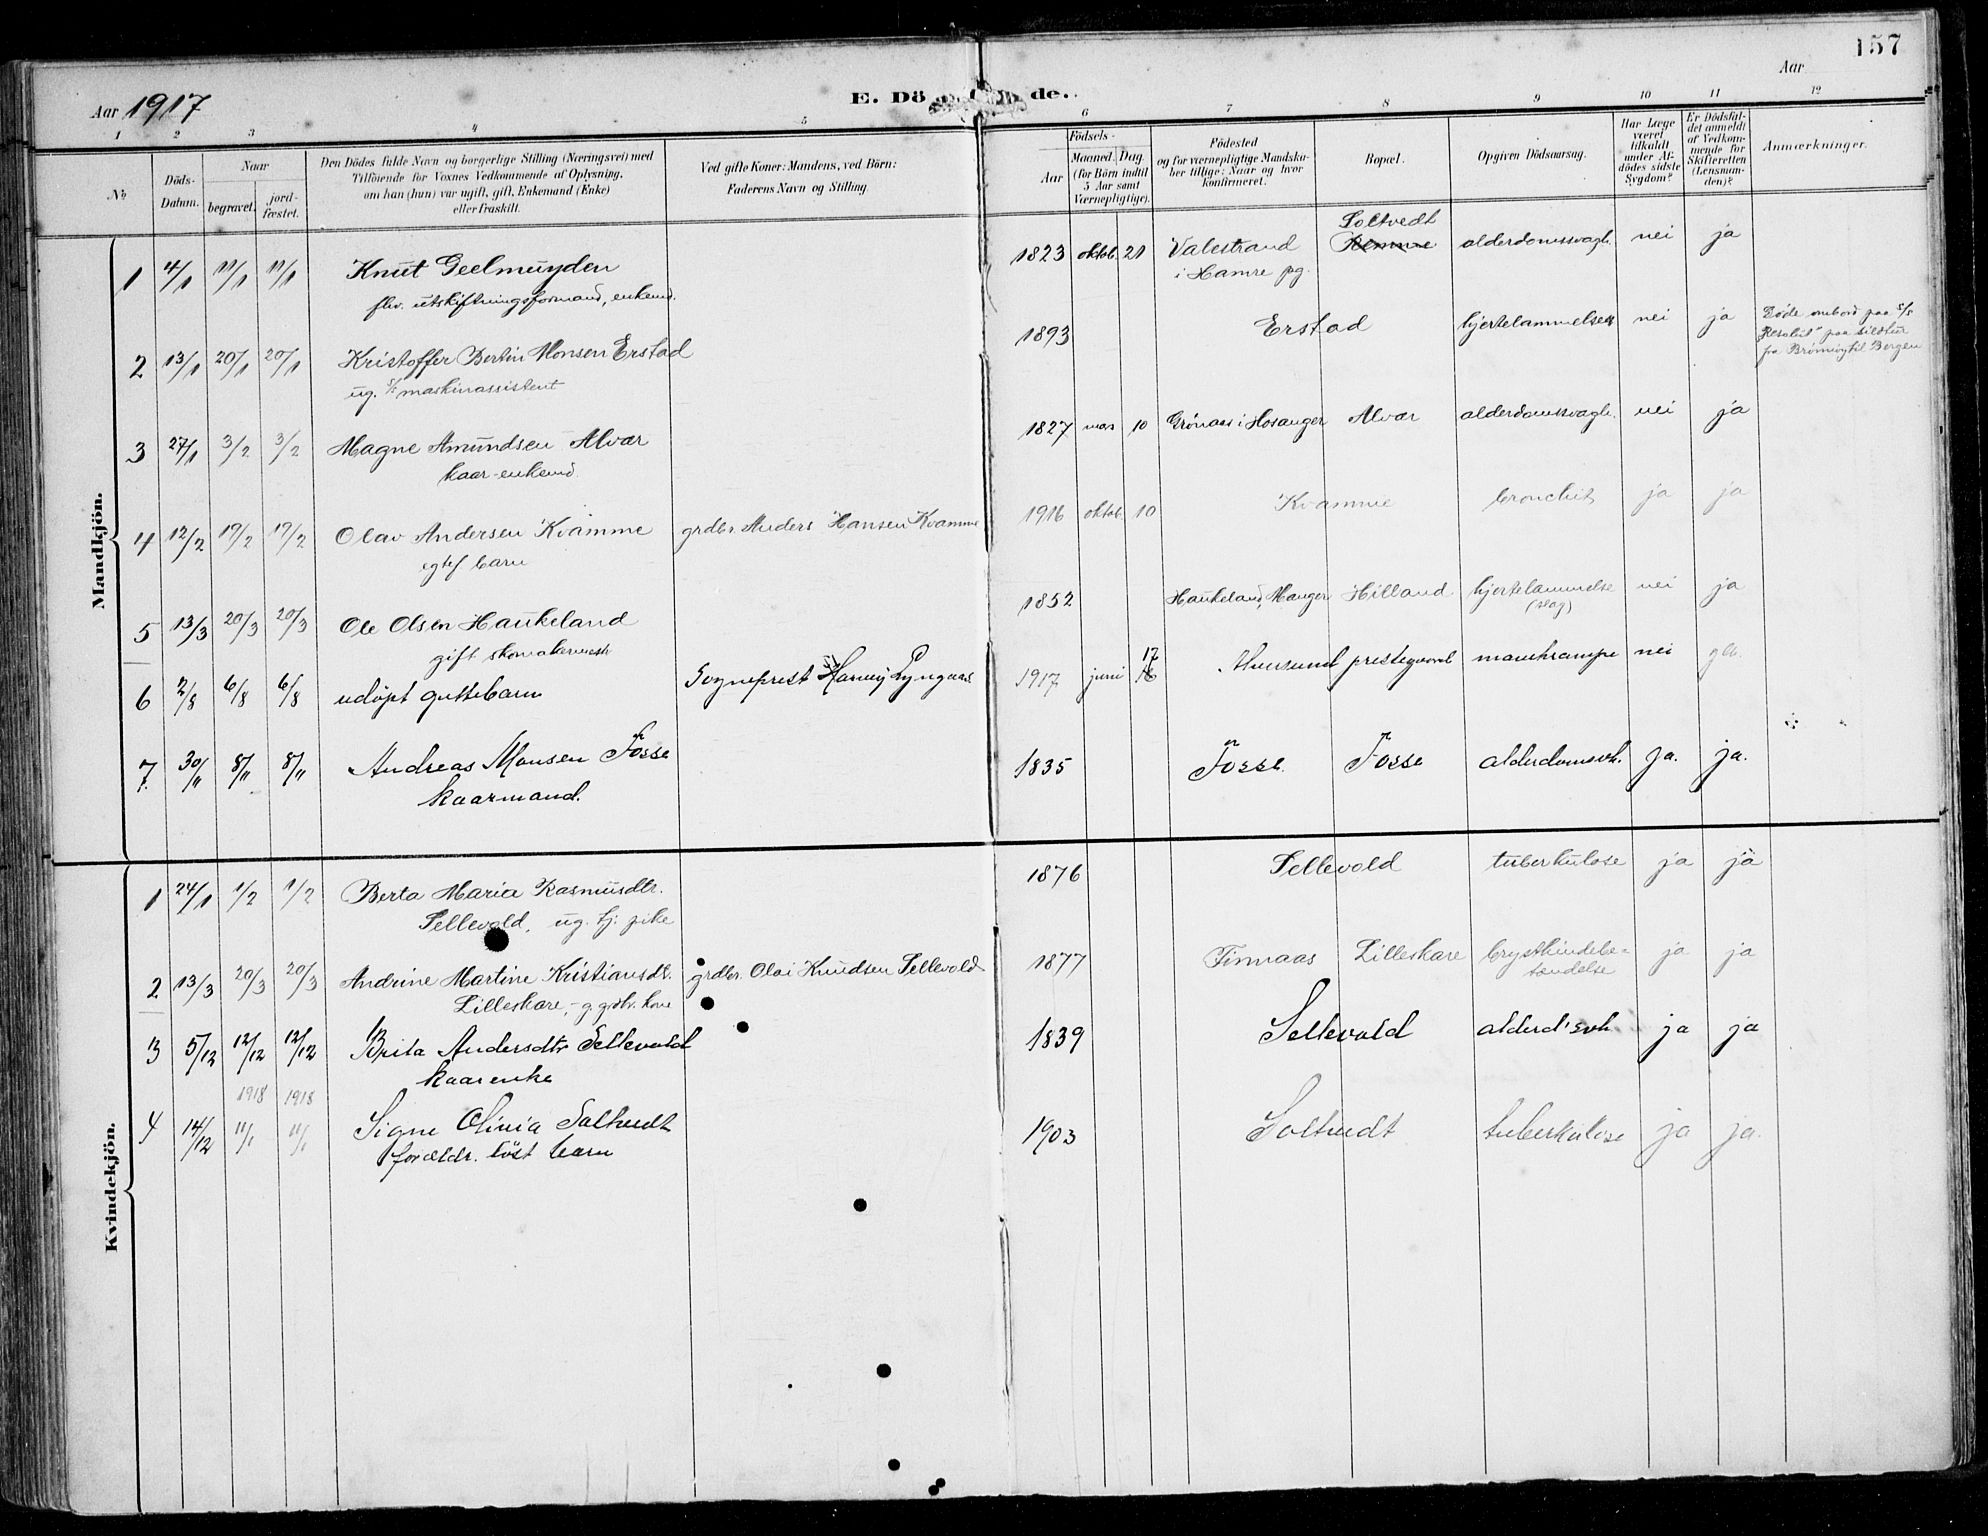 157
Aar 1917
E. Dö de.
Aar
1 2 3 4 5 6 7 8 9 10 11 12
No
Döds-Datum.
Naar
begravet.
jord-fæstet.
Den Dödes fulde Navn og borgerlige Stilling (Næringsvei) med
Tilföiende for Voxnes Vedkommende af Oplysning,
om han (hun) var ugift, gift, Enkemand (Enke)
eller fraskilt.
Ved gifte Koner: Mandens, ved Börn:
Faderens Navn og Stilling.
Födsels-
Aar
Maaned. Dag.
(for Börn indtil
5 Aar samt
Værnepligtige).
Födested
og for værnepligtige Mandska-
ber tillige: Naar og hvor
konfirmeret.
Bopæl.
Opgiven Dödsaarsag.
Har Læge
været
tilkaldt
under Af-
dödes sidste
Sygdom?
Er Dödsfal-
det anmeldt
af Vedkom-
mende for
Skifteretten
(Lensman-
den)?
Anmærkninger.
Mandkjön.
1 4/1 11/1 11/1 Knut Geelmuyden 1823 oktob. 21 Valestrand Soltvedt alderdomssvagh. nei ja
fhv. utskiftningsformand, enkemd. i Hamre pg.
2 13/1 20/1 20/1 Kristoffer Bertin Monsen Erstad 1893 Erstad hjertelammelse nei ja Døde ombord paa S/S
ug. maskinassistent paa sildtur
fra til Bergen
3 27/1 3/2 3/2 Magne Amundsen Alvær 1827 mars 10 Grønaas i Hosanger Alvær alderdomssvagh. nei ja
kaar-enkemd.
4 12/2 17/2 17/2 Olav Andersen Kvamme grdbr. Anders Hansen Kvamme 1916 oktob. 10 Kvamme bronchit ja ja
egtef. barn
5 13/3 20/3 20/3 Ole Olsen Haukeland 1852 Haukeland, Manger Hilland hjertelammelse nei ja
gift skomakermestr. (slag)
6 2/8 6/8 6/8 udøpt guttebarn Sogneprest Lyngaas 1917 juni 17 Alversund prestegaard mavekrampe nei
7. 30/11 8/11 8/11 Andreas Monsen Fosse 1835 Fosse Fosse alderdomssvh. ja. ja.
kaarmand.
Kvindekjön.
1 24/1 1/2 1/2 Berta Maria Rasmusdtr. 1876 Sellevold tuberkulose ja ja
Sellevold, ug. tj. pike
2 13/3 20/3 20/3 Andrine Martine Kristiansdtr. grdbr. Olai Knudsen Sellevold 1877 Finnaas Lilleskare brysthindebe-
Lilleskare, g. grdbr. kone tændelse ja ja
3 5/12 12/12 12/12 Brita Andersdtr. Sellevold 1839 Sellevold alderd'svh. ja ja
kaarenke
1918 1918
4 14/12 11/1 11/1 Signe Olivia Saltvedt 1903 Soltvedt tuberkulose ja ja.
forældr. løst barn